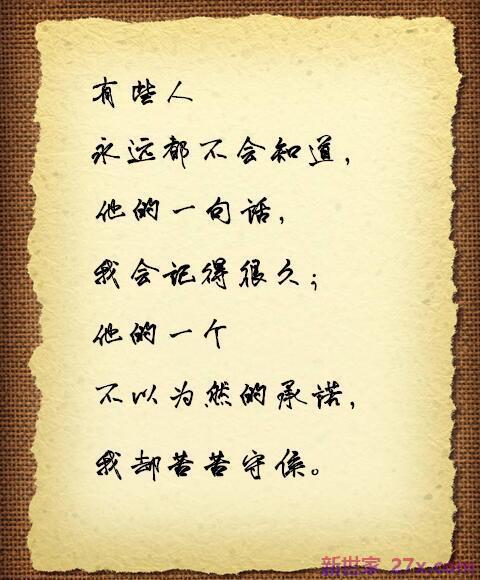 有些人
永远都不会知道，
他的一句话，
我会记得很久；
他的一个
不以为然的承诺，
我却苦苦守候。
新世家 27x.com